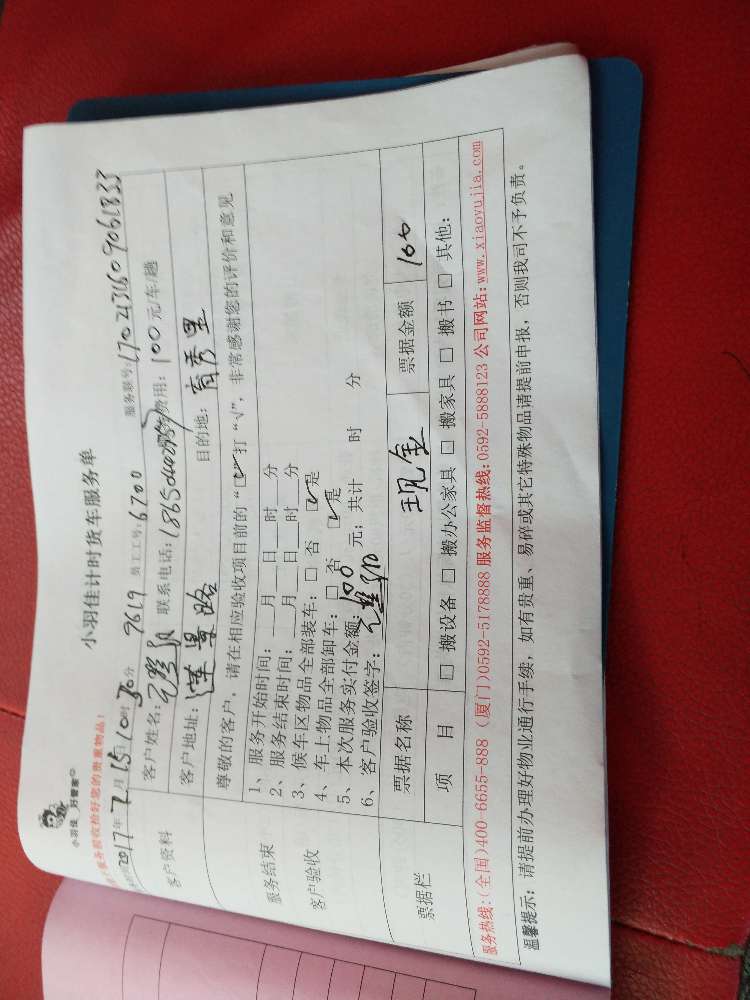 小羽佳 好管家
小羽佳计时货车服务单
服务前收拾好您的贵重物品!
2017年7月15日10时30分 9619 员工工号:6700 服务联号:
客户资料
客户姓名: 联系电话: 费用:100元/车/趟
客户地址:莲景路 目的地:育秀里
尊敬的客户,请在相应验收项目前的“☑打“√”,非常感谢您的评价和意见
服务结束
客户验收
1、服务开始时间:___月___日___时___分
2、服务结束时间:___月___日___时___分
3、候车区物品全部装车:□ 否 ☑是
4、车上物品全部卸车:□ 否 ☑是
5、本次服务实付金额:100元;共计 时 分
6、客户验收签字:
票据栏
票据名称 现金 票据金额 100
项 目 □ 搬设备 □ 搬办公家具 □ 搬家具 □ 搬书 □ 其他:
服务热线:(全国)400-6655-888 (厦门)0592-5178888 服务监督热线:0592-5888123 公司网站:www.xiaoyujia.com
温馨提示:请提前办理好物业通行手续,如有贵重、易碎或其它特殊物品请提前申报,否则我司不予负责。